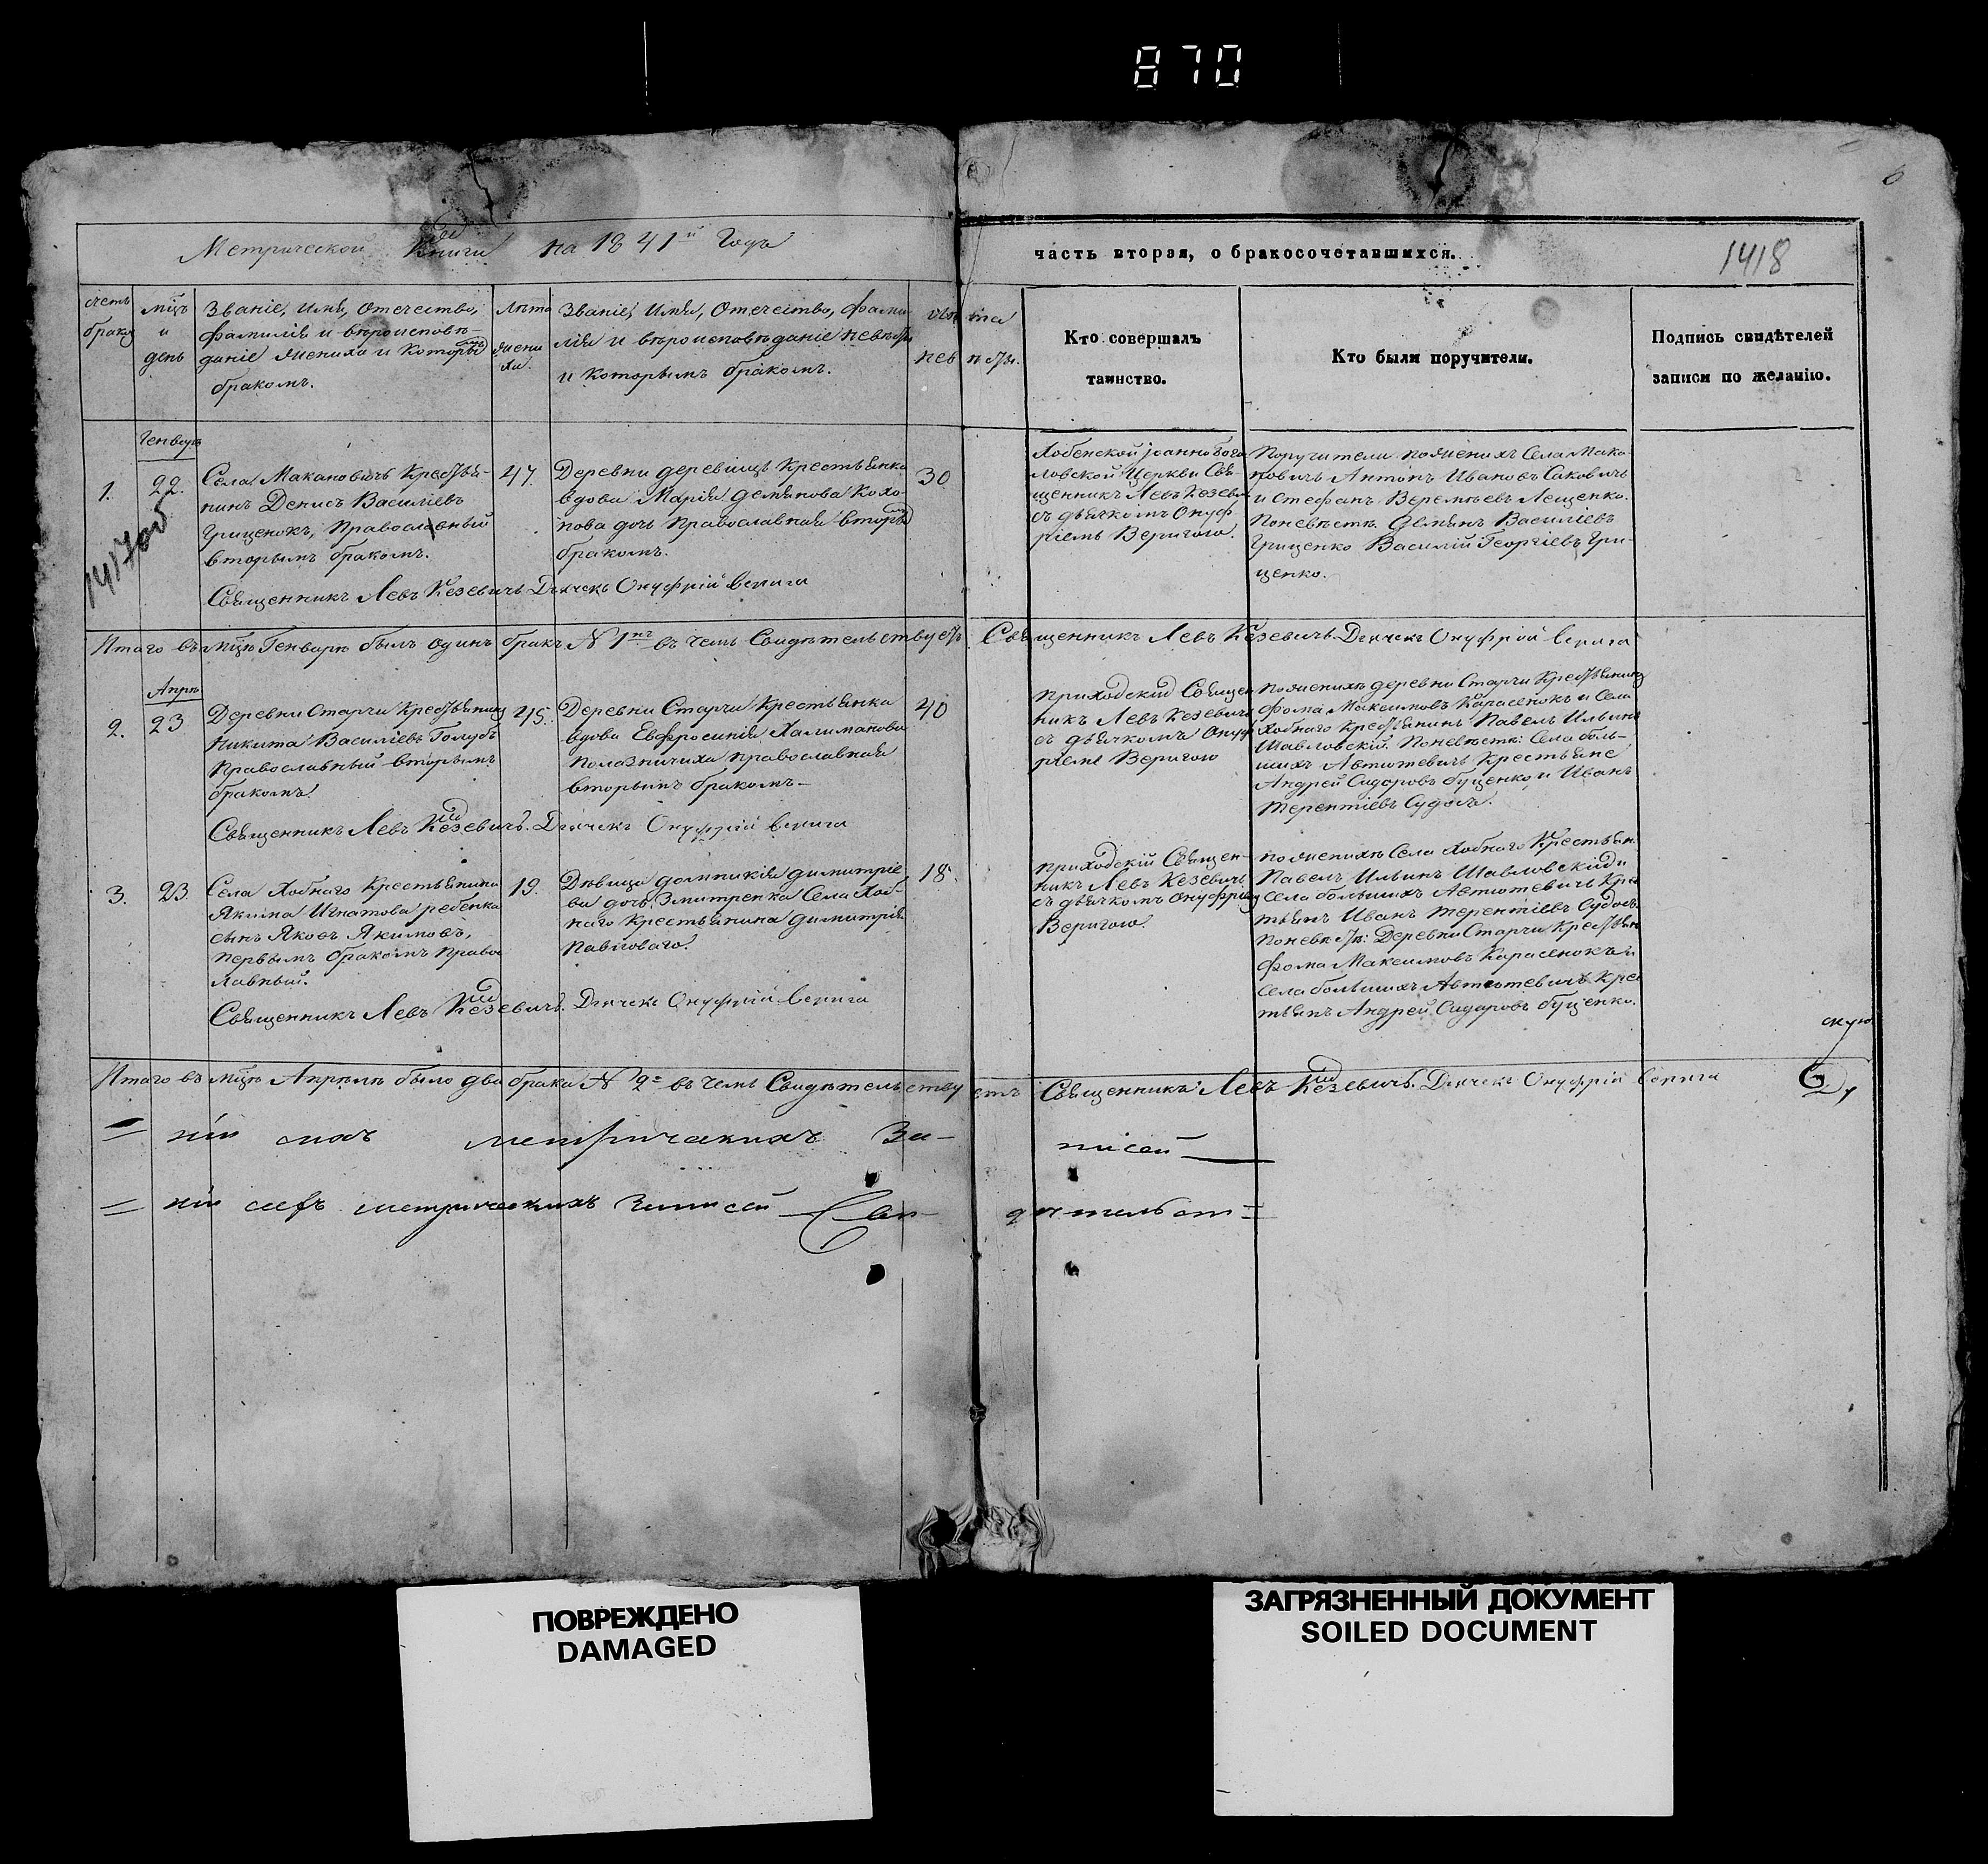 870
6
Метрической Книги на 1841й Годъ
часть вторая, о бракосочетавшихся.
1418
счетъ браковъ
мцъ и день
Званіе, Имя, Отечество,
фамилія и вѣроисповѣ-
даніе жениха и которымъ
бракомъ.
Лѣта
жени
ха.
Званіе, Имя, Отечество, фами
лія и вѣроисповѣданіе невѣсты
и которымъ бракомъ.
лѣта
невѣсты.
Кто совершалъ
таинство.
Кто были поручители.
Подпись свидѣтелей
записи по желанію.
Генварь
1.
22.
1417об
Села Макановичъ Крестья-
нинъ Денисъ Василіевъ
Гриценокъ, Православный
вторымъ бракомъ.
47.
Деревни деревищъ крестьянка
вдова Марія Демянова Кохо-
нова дочь Православная вторымъ
бракомъ.
30
Хобенской Іоанно Бого
ловской Церкви Свя-
щенникъ Левъ Кезевич
съ дьячкомъ Онуф
ріемъ Веригою.
Поручители пожениху Села Мако-
новичъ Антонъ Ивановъ Саковичъ
и Стефанъ Веремѣевъ Лещенко.
Поневѣстѣ Демянъ Василіевъ
Гриценко Василій Георгіевъ Гри-
ценко.
Священникъ Левъ Кезевичъ Дьячекъ Онуфрій Верига
Итого въ мцѣ Генварѣ былъ одинъ бракъ N 1нъ въ чемъ Свидѣтельствуетъ Священникъ Левъ Кезевичъ. Дьячекъ Онуфрій Верига
Апрѣ
2.
23
Деревни Старчи Крестьянинъ
Никита Василіевъ Голубъ
Православный вторымъ
бракомъ.
45.
Деревни Старчи Крестьянка
вдова Евфросинія Халиманова
Полазничиха православная
вторымъ бракомъ-
40
Приходскій Священ
никъ Левъ Кезевичъ
съ дьячкомъ Онуф
ріемъ Веригою
Пожениху деревни Старчи Крестьянинъ
Фома Максимовъ Карасенокъ и Села
Хобнаго Крестьянинъ Павелъ Ильинъ
Шавловскій. Поневѣстѣ: Села боль-
шихъ Автютевичъ Крестьяне
Андрей Сидоровъ Буценко, и Иванъ
Терентіевъ Судосъ.
Священникъ Левъ Кезевичъ. Дьячекъ Онуфрій Верига
3.
23.
Села Хобнаго Крестьянина
Якима Игнатова ребенка
сынъ Яковъ Якимовъ,
первымъ бракомъ Правос
лавный.
19.
Дѣвица Домникія Димитріе
ва дочь Змитренка Села Хоб-
наго Крестьянина Димитрія
18.
Приходскій Священ-
никъ Левъ Кезевичъ
съ дьячкомъ Онуфріемъ
Веригою.
Пожениху Села Хобнаго Крестьян.
Павелъ Ильинъ Шавловскій и
села большихъ Автютевичъ Крес
тьянъ Иванъ Терентіевъ Судосъ.
Поневѣстѣ: Деревни Старчи Крестьян
Фома Максимовъ Карасенокъ и
села большихъ Автютевичъ Крес
тьянъ Андрей Сидоровъ Буценко.
Священникъ Левъ Кезевичъ. Дьячекъ Онуфрій Верига
скую
Итого въ мцѣ Апрѣлѣ было два брака N 2а въ чемъ Свидѣтельствуетъ Священникъ Левъ Кезевичъ. Дьячекъ Онуфрій Верига
метрическихъ За-
писей
метрическихъ Записей Сви-
дѣтельст=
ПОВРЕЖДЕНО
DAMAGED
ЗАГРЯЗНЕННЫЙ ДОКУМЕНТ
SOILED DOCUMENT